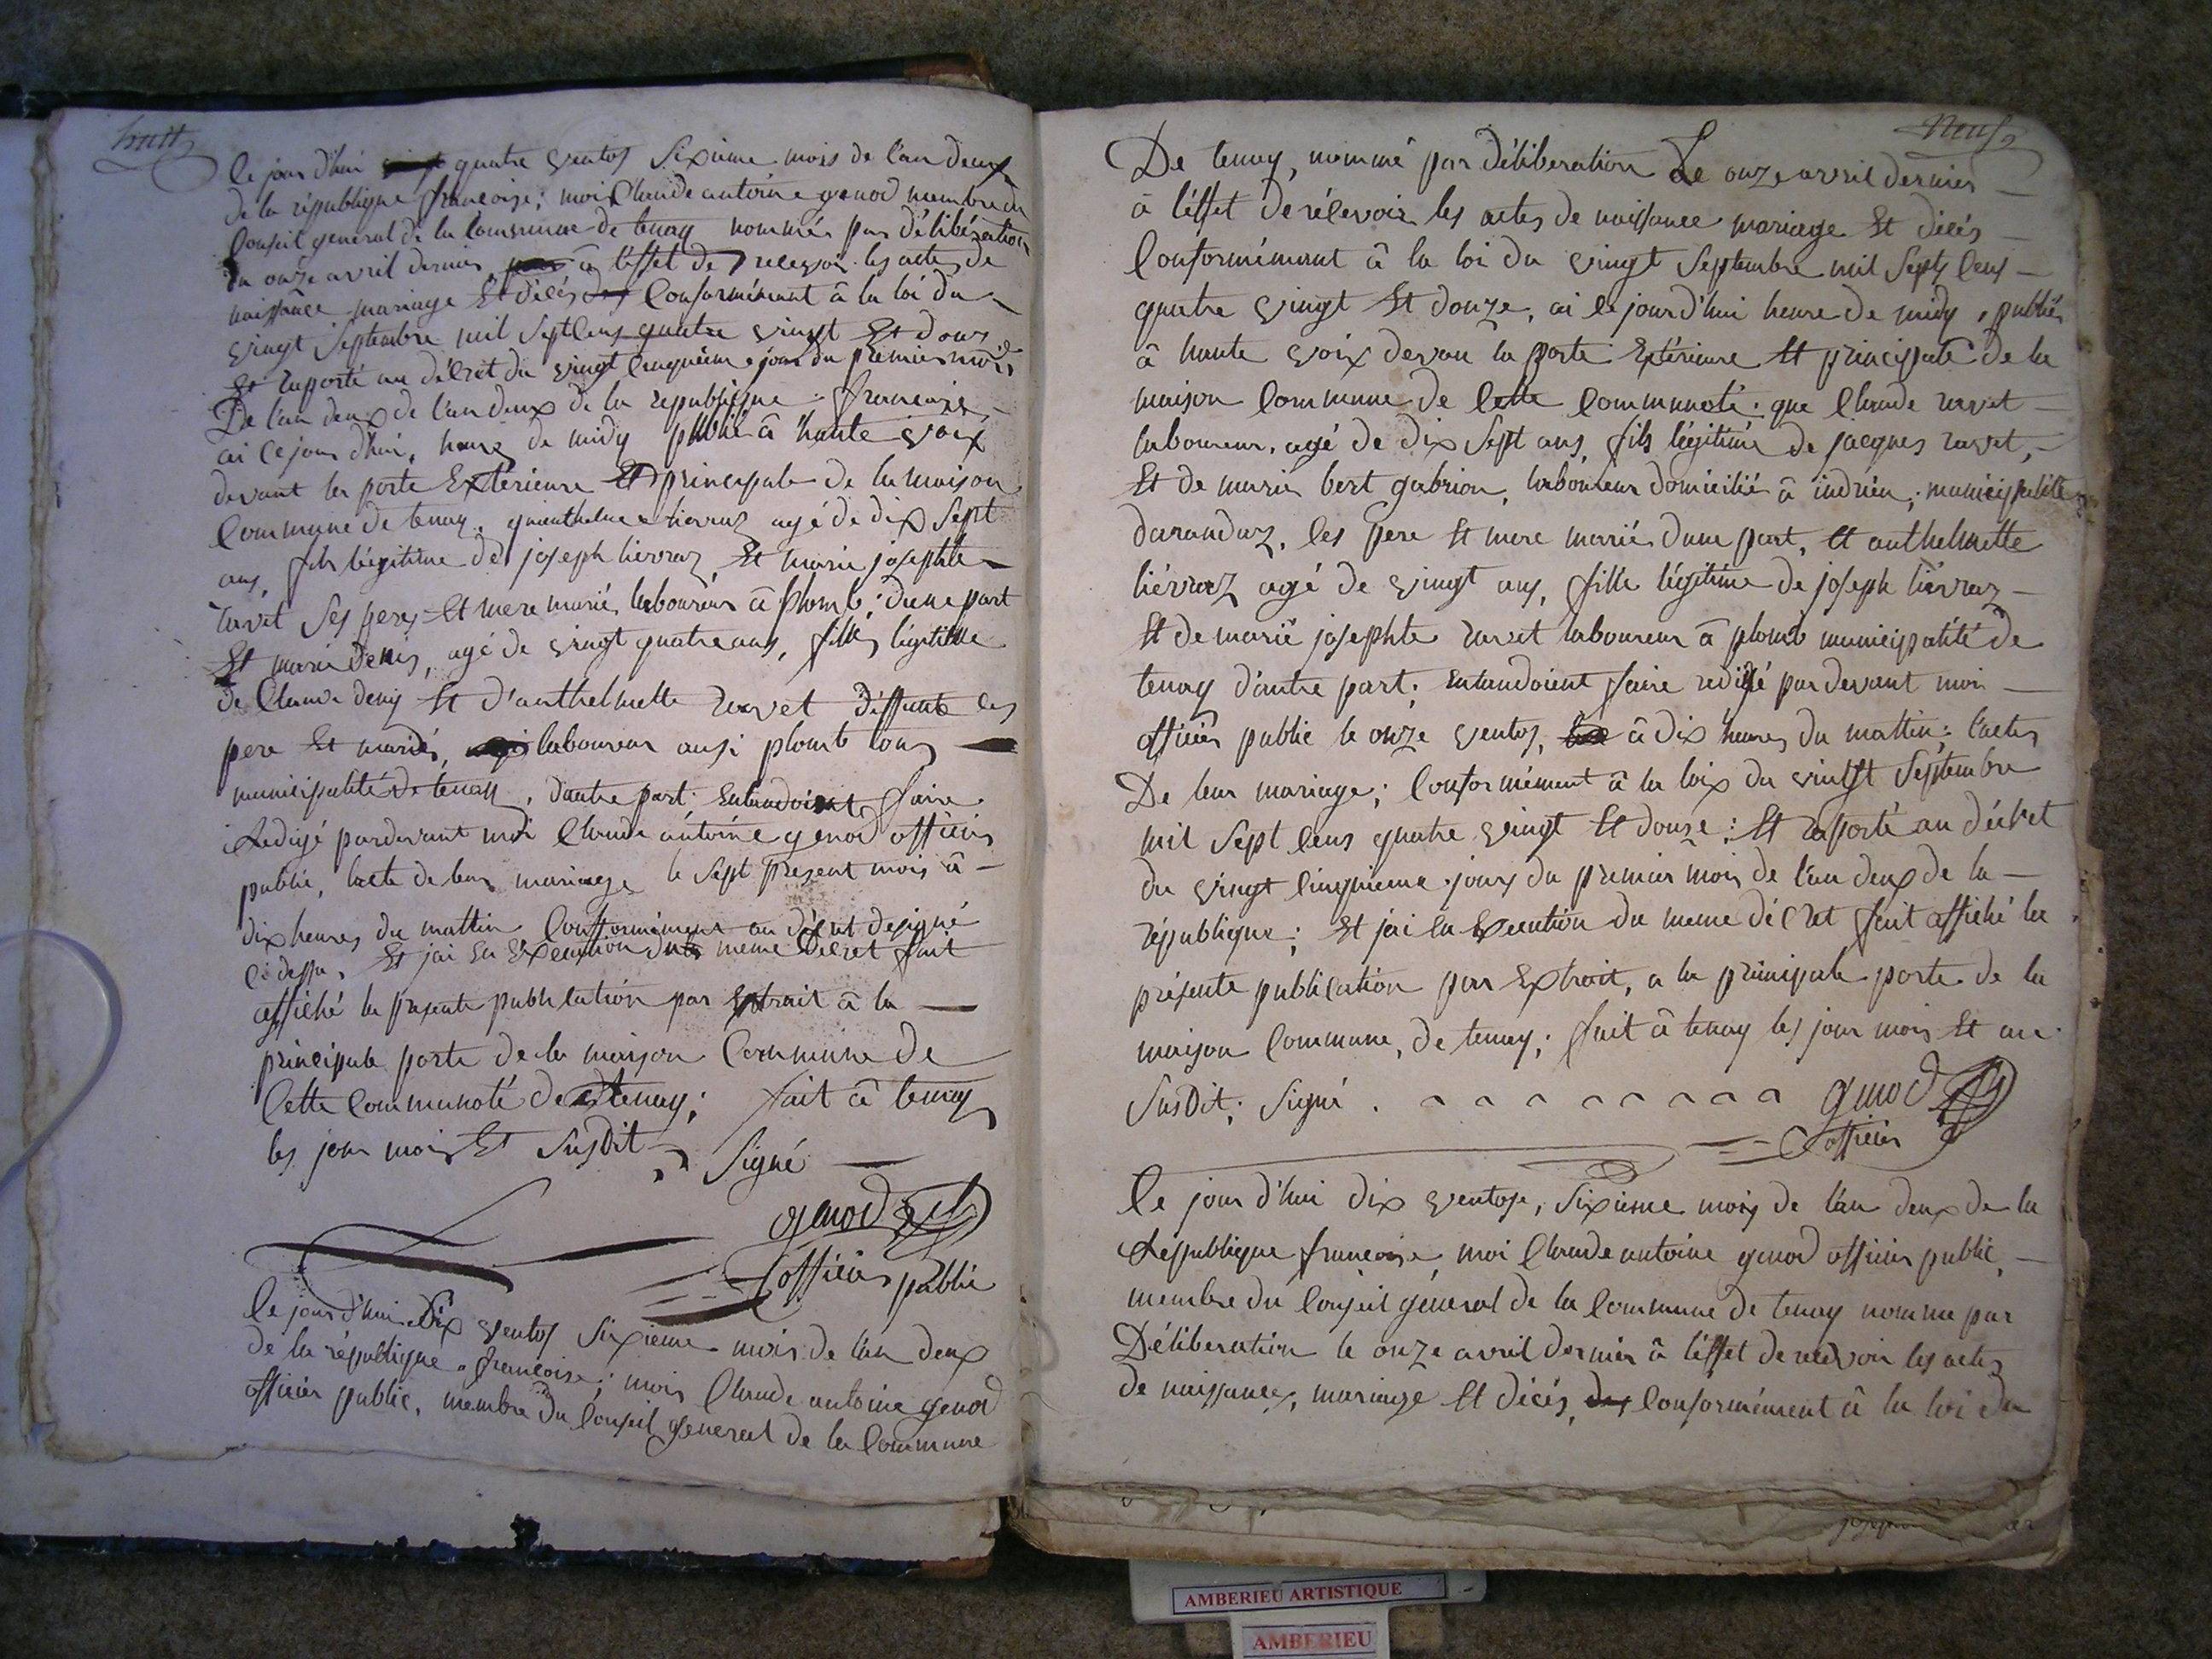 huit
Ce jourd'hui quatre ventos sixieme mois de l'an deux
de la république francoise; moi Claude antoine genod membre du
Conseil general de la Commune de tenay nommés par délibération
du onze avril dernier à l'effet de recevoir les actes de
naissance mariage Et décés Conformément à la loi du
vingt Septembre mil Sept Cens quatre vingt Et douze
Et raporté au décret du vingt Cinquieme jour du premier mois
De l'an deux de l'an deux de la republique francoise
ai Cejourd'hui, heure de midy publié à haute voix
devant la porte Extérieure Et principale de la maison
Commune de tenay, quanthelme liévraz agé de dix Sept
ans, fils légitime de joseph liévraz Et marie josephte
ravet Ses pere Et mere marié, laboureur à plomb; dune part
Et marie denis, agé de vingt quatre ans, fille légitime
de Claude deny Et d'anthelmette ravet deffunte Ces
pere Et mariés, laboureur ausi plomb tous
municipalité de tenay, dautre part. Entandoient faire
Redigé pardevant moi Claude antoine genod officier
public, lacte de leur mariage le Sept present mois à
dix heures du mattin Conformément au décret designé
Cidessu, Et jai En Execution du meme décret fait
affiché la presente publication par Extrait à la
principale porte de la maison Commune de
Cette Communoté de tenay; fait à tenay
les jour mois Et Susdit, Signé
genod
officier public
Ce jourd'hui Dix ventos Sixieme mois de l'an deux
de la république francoise; moi Claude antoine genod
officier public, membre du Conseil general de la Commune
Neuf
De tenay, nommé par déliberation Le onze avril dernier
à l'effet de récevoir les actes de naissance mariage Et décés
Conformément à la loi du vingt Septembre mil Septs Cens
quatre vingt Et douze, ai Cejourd'hui heure de midy, publiés
à haute voix devan la porte Extérieure Et principale de la
maison Commune de Cette Communoté: que Claude ravet
laboureur, agé de dix Sept ans, fils légitime de jacques ravet,
Et de marie bert gabrion, laboureur domicilié à indrieu, municipalité
darandaz, Ces pere Et mere marié, dune part, Et anthelmette
liévraz agé de vingt ans, fille légitime de joseph liévraz
Et de marie josephte ravet laboureur à plomb municipalité de
tenay d'autre part. Entandoient faire redigé par devant moi
officier public le onze ventos, à dix heures du mattin; l'actes
De leur mariage; Conformément à la loix du vingt Septembre
mil Sept Cens quatre vingt Et douze; Et raporté au décret
du vingt Cinquieme jours du premier mois de l'an deux de la
république; Et jai En Execution du meme décret fait affiché la
présente publication par Extrait, a la principale porte de la
maison Commune, de tenay; fait à tenay les jour mois Et an
Susdit; Signé. genod
officier
Ce jourd'hui dix ventose, Sixieme mois de l'an deux de la
République francoise, moi Claude antoine genod officier public,
membre du Conseil géneral de la Commune de tenay nommé par
Déliberation le onze avril dernier à l'effet de recevoir les actes
de naissances, mariage Et décés, Conformément à la loi du
AMBERIEU ARTISTIQUE
AMBERIEU